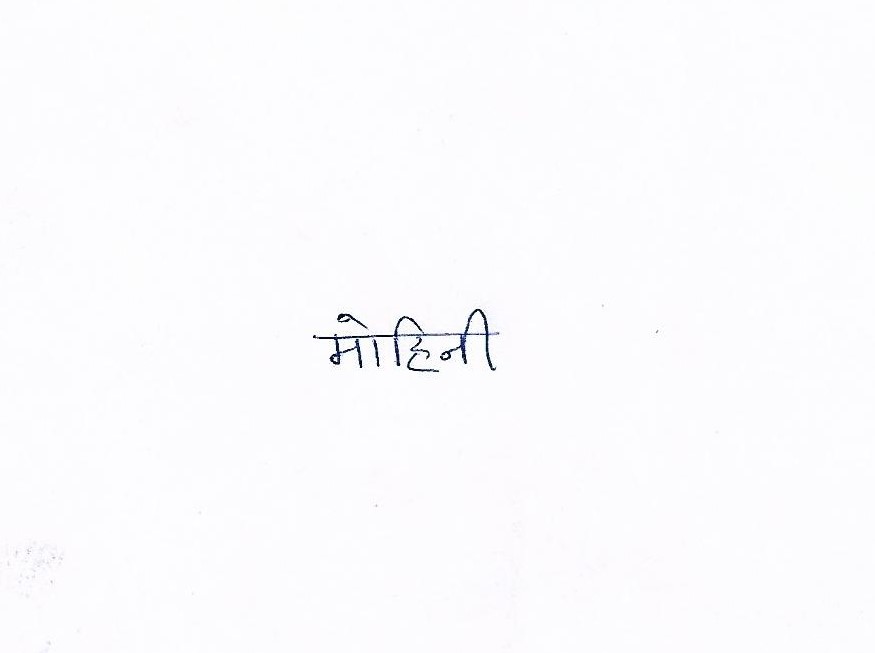 मोहिनी